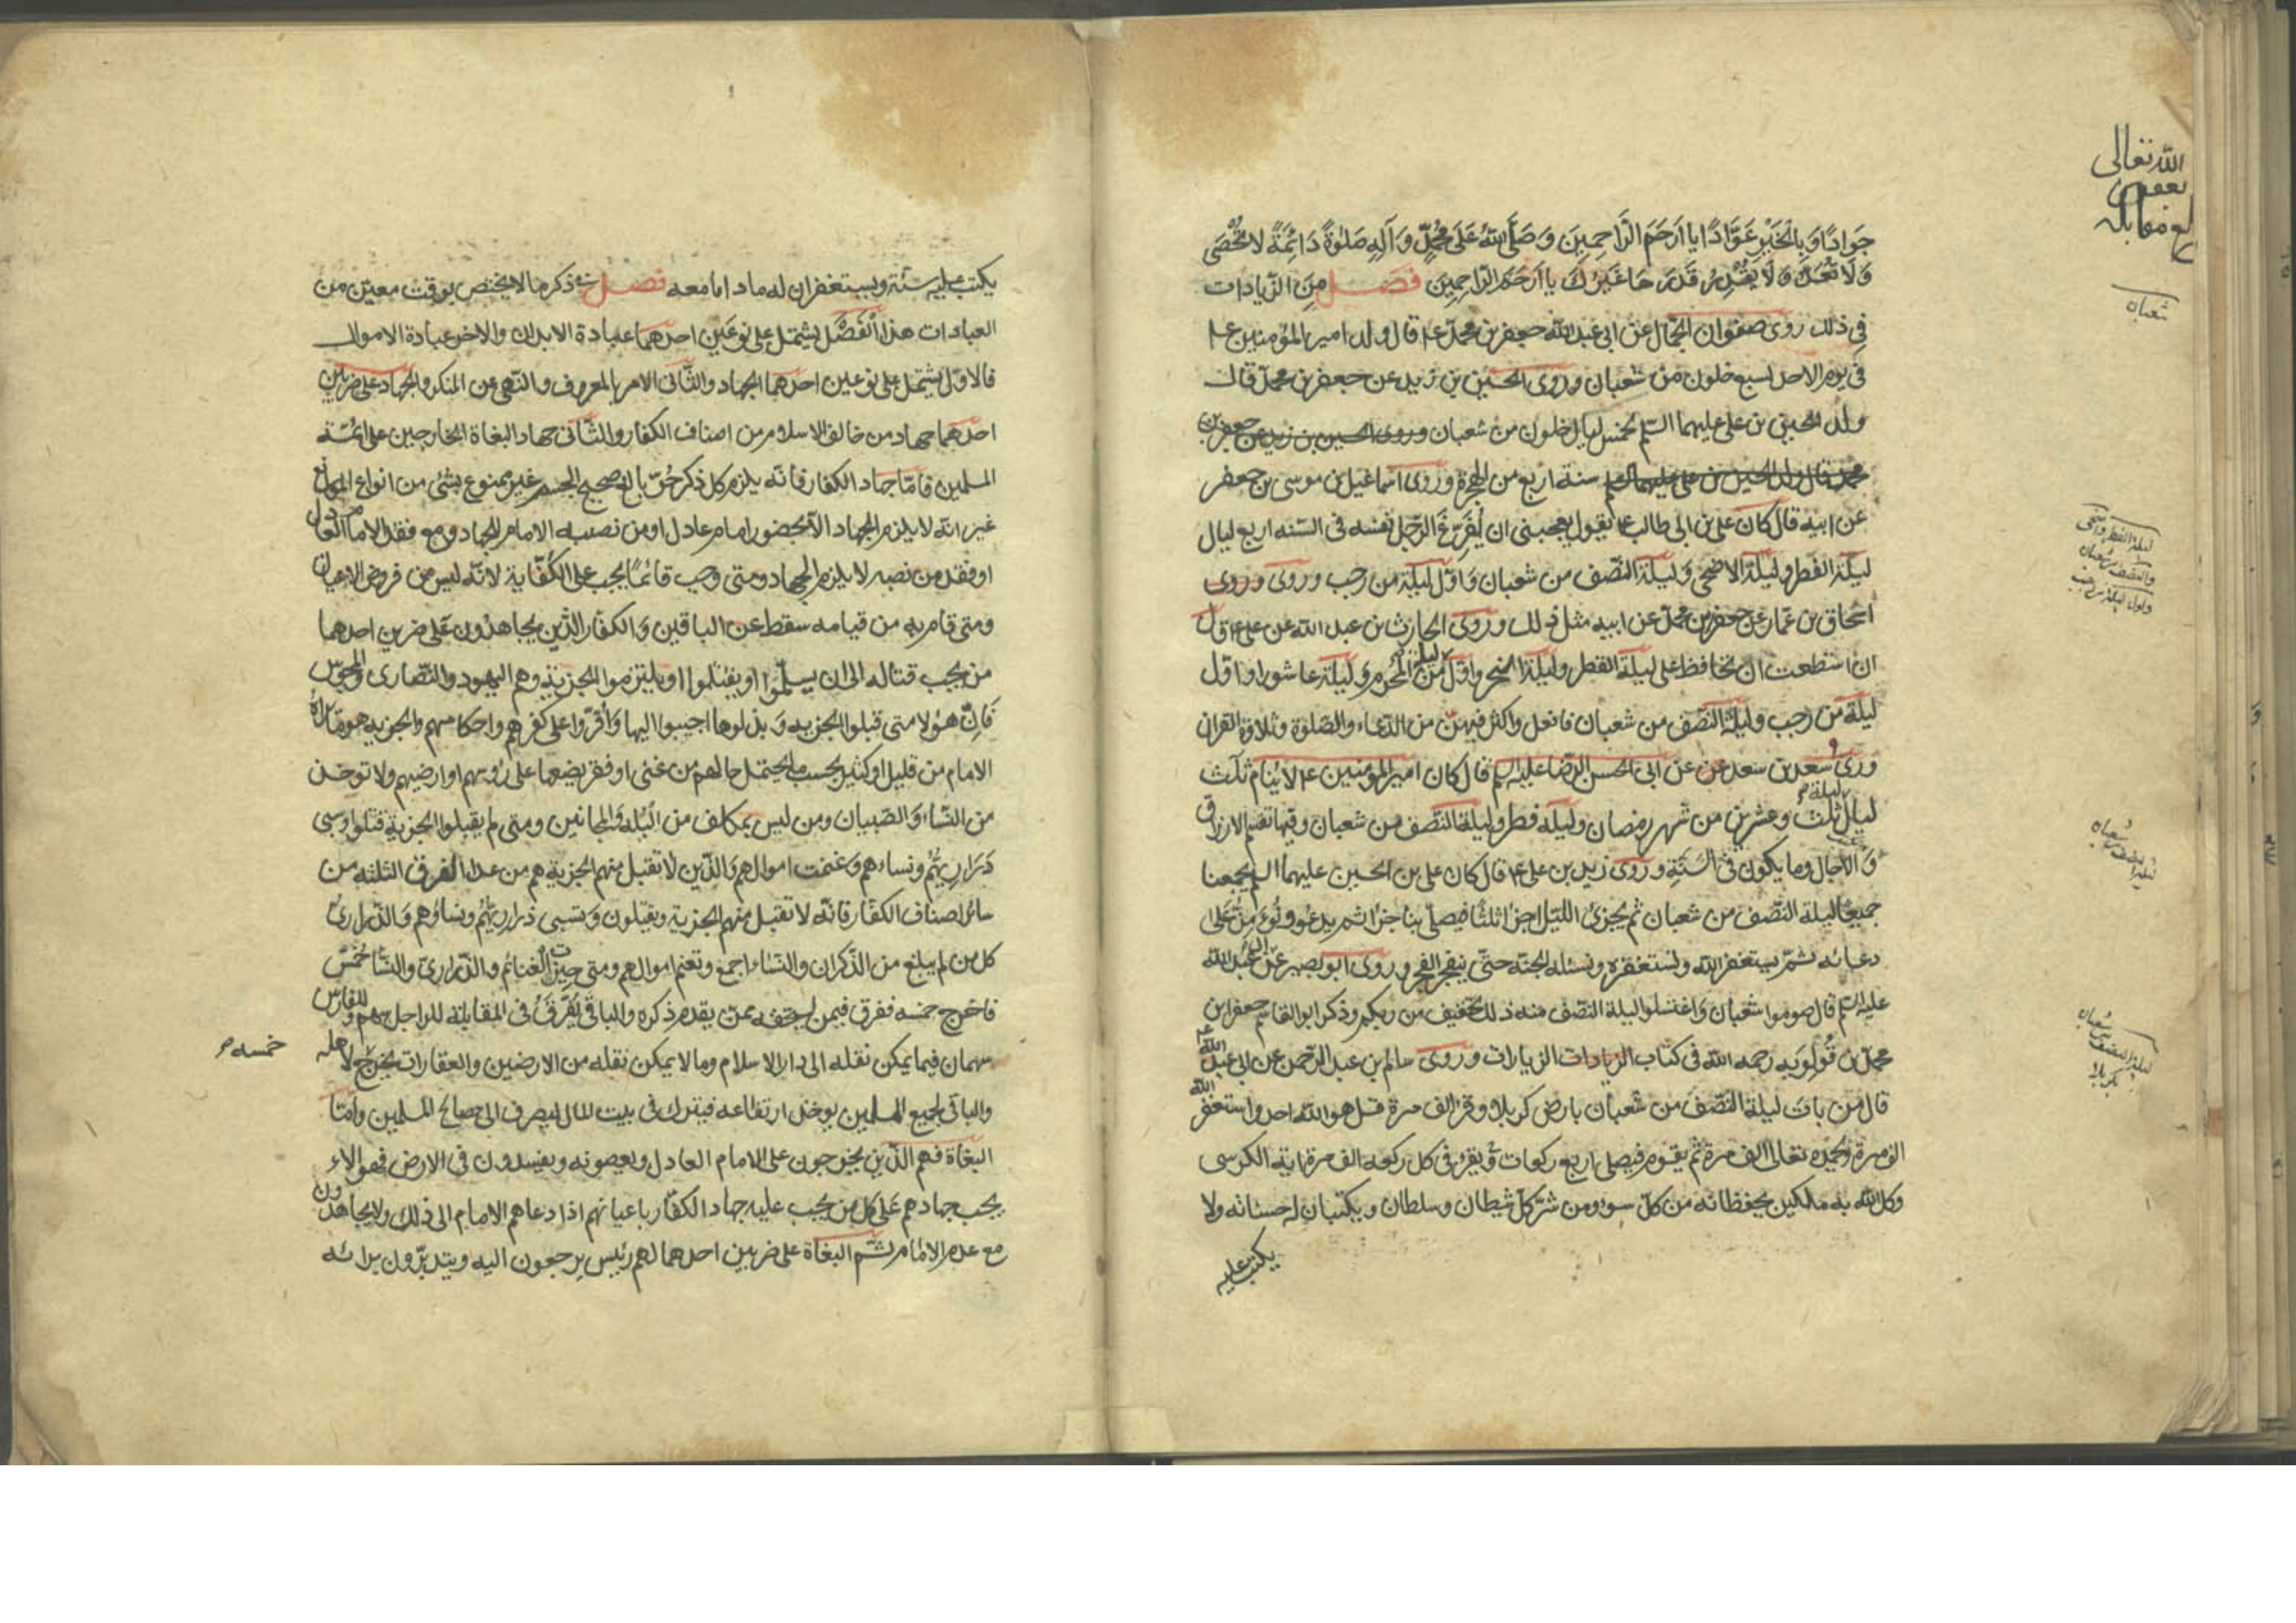 جَوَادًا وَبِالْخَيْرِ عَوَّادًا يا اَرْحَمَ الرَّاحِمِينَ وَصَلَّى اللهُ عَلى مُحَمَّدٍ وَآلِهِ صَلوةً دَائِمَةً لا تُحْصَى
وَلَا تُعَدُّ وَلَا يَقْدِرُ قَدْرَهَا غَيْرُكَ يا اَرْحَمَ الرَّاحِمِينَ فصل مِنَ الزّيادات
فِي ذلك روى صفوان الجمّال عن ابى عبد الله جعفر بن محمد ع قال ولد امير المؤمنين ع
فى يوم الاحد لسبع خلون من شعبان وروى الحسين بن زيد عن جعفر بن محمد قال
ولد الحسين بن على عليهما السلم لخمس ليال خلون من شعبان وروى الحسين بن زيد عن جعفر بن
محمد قال ولد الحسين بن على عليهما السلم سنة اربع من الهجرة وروى اسماعيل بن موسى بن جعفر
عن ابيه قال كان على بن ابى طالب ع يقول يعجبنى ان يُفَرِّغَ الرّجل نفسه فى السّنه اربع ليال
ليلة الفطر وليلة الاضحى وليلة النّصف من شعبان وَاوّل ليلة من رجب وروى وروى
اسحاق بن عمار عن جعفر بن محمد عن ابيه مثل ذلك وروى الحارث بن عبد الله عن على ع قال
ان استطعت ان تحافظ على ليلة الفطر وليلة النحر واوّل ليلة من المحرم وليلة عاشورا واوّل
ليلة من رجب وليلة النّصف من شعبان فافعل واكثر فيهنّ من الدّعاء والصّلوة وتلاوة القران
وروى سعد بن سعد عن عن ابى الحسن الرّضا عليه السلم قال كان امير المؤمنين ع لا ينام ثلث
ليال ليلة ثلث وعشرين من شهر رمضان وليلة فطر وليلة النّصف من شعبان وفيها تقسم الارزاق
وَالآجال وما يكون فى السّنَةِ وروى زيد بن على ع قال كان على بن الحسين عليهما السلم يجمعنا
جميعًا ليلة النّصف من شعبان ثم يجزئ اللّيل اجزاءً ثلثًا فيصلّى بنا جزءًا ثم يدعو ونُؤَمِّنُ عَلى
دعائه ثمّ يستغفر الله ونستغفره ونسئله الجنّة حتّى ينفجر الفجر وروى ابو بصير عن ابى عبد الله
عليه السلم قال صوموا شعبان وَاغتسلوا ليلة النّصف منه ذلك تخفيف من ربّكم وذكر ابو القاسم جعفر ابن
محمد بن قُولَوَيه رحمه الله فى كتاب الزيادات الزيارات وروى سالم بن عبد الرّحمن عن ابى عبد الله ع
قال من بات ليلة النّصف من شعبان بارض كربلا وقرا الف مرة قل هو الله احد واستغفر الله
الف مرة وحمده تعالى الف مرة ثم يقوم فيصلى اربع ركعات ويقرء فى كل ركعه الف مرة اية الكرسى
وكل الله به ملكين يحفظانه من كلّ سوء ومن شرّ كلّ شيطان وسلطان ويكتبان له حسناته ولا
يكتب عليه
الله تعالى
شعبان
ليلة الفطر والاضحى
والنصف من شعبان
واول ليلة من رجب
ليلة النصف من شعبان
ليلة النصف من شعبان
بكربلا
يكتب عليه سيّئة ويستغفران له ماداما معه فصل فى ذكر ما لا يختص بوقت معيّن من
العبادات هذا اَلْفَصْل يشتمل على نوعَين احدهما عبادة الابدان والاخر عبادة الاموال
فالاوّل يشتمل على نوعين احدهما الجهاد والثّانى الامر بالمعروف والنّهى عن المنكر والجهاد على ضربين
احدهما جهاد من خالف الاسلام من اصناف الكفار والثّانى جهاد البغاة الخارجين على ائمّة
المسلمين فامّا جهاد الكفار فانّه يلزم كل ذكر حُرّ بالغ صحيح الجسم غير ممنوع بشئ من انواع الموانع
غير انّه لا يلزم الجهاد الّا بحضور امام عادل او من نصبه الامام للجهاد ومع فقد الامام العادل
او فقد من نصبه لا يلزم الجهاد ومتى وجب قائمًا يجب على الكفاية لانّه ليس من فروض الاعيان
ومتى قام به من قيامه سقط عن الباقين وَالكفّار الّذين يجاهدون عَلى ضربين احدهما
من يجب قتاله الى ان يسلّموا او يقتلوا او يلتزموا الجزية وهم اليهود والنّصارى والمجوس
فَانّ هؤلا متى قبلوا الجزيه وَبذلوها اجيبوا اليها وَاُقرّوا على كفرهم واحكامهم والجزيه هو ما يراه
الامام من قليل او كثير بحسب ما يحتمل حالهم من غنى او فقر يضعها على رؤسهم او ارضيهم ولا توخذ
من النّساء وَالصّبيان ومن ليس بمكلف من البُله وَالمجانين ومتى لم يقبلوا الجزية قتلوا وسبى
ذَرَارِيهُم ونساءهم وَغنمت اموالهم وَالّذين لا تقبل منهم الجزية هم من عدا الفرق الثلثه من
سائر اصناف الكفّار فانّه لا تقبل منهم الجزية ويقتلون وَتسبى ذراريهُم ونساؤهم وَالذّرارى
كل من لم يبلغ من الذّكران والنّساء اجمع وتغنم اموالهم ومتى حيزت الغنائم والذّرارى والنّسا خُمّس
فاخرج خمسه ففرق فيمن يستحقه ممّن يقدم ذكره والباقى يُفَرَّقُ فى المقابلة للراجل سهم وللفارس
سهمان فيما يمكن نقله الى دار الاسلام وما لا يمكن نقله من الارضين والعقارات يخرج لاهله
خمسه
والباقى لجميع المسلمين يوخذ ارتفاعه فيترك فى بيت المال ليصرف الى مصالح المسلمين وامّا
البغاة فهم الّذين يخرجون على الامام العادل ويعصونه ويفسدون فى الارض فهؤلاء
يجب جهادهم عَلى كل من يجب عليه جهاد الكفّار باعيانهم اذا دعاهم الامام الى ذلك ولا يجاهدون
مع عدم الامام ثمّ البغاة على ضربين احدهما لهم رئيس يرجعون اليه ويتدبّرون برائه